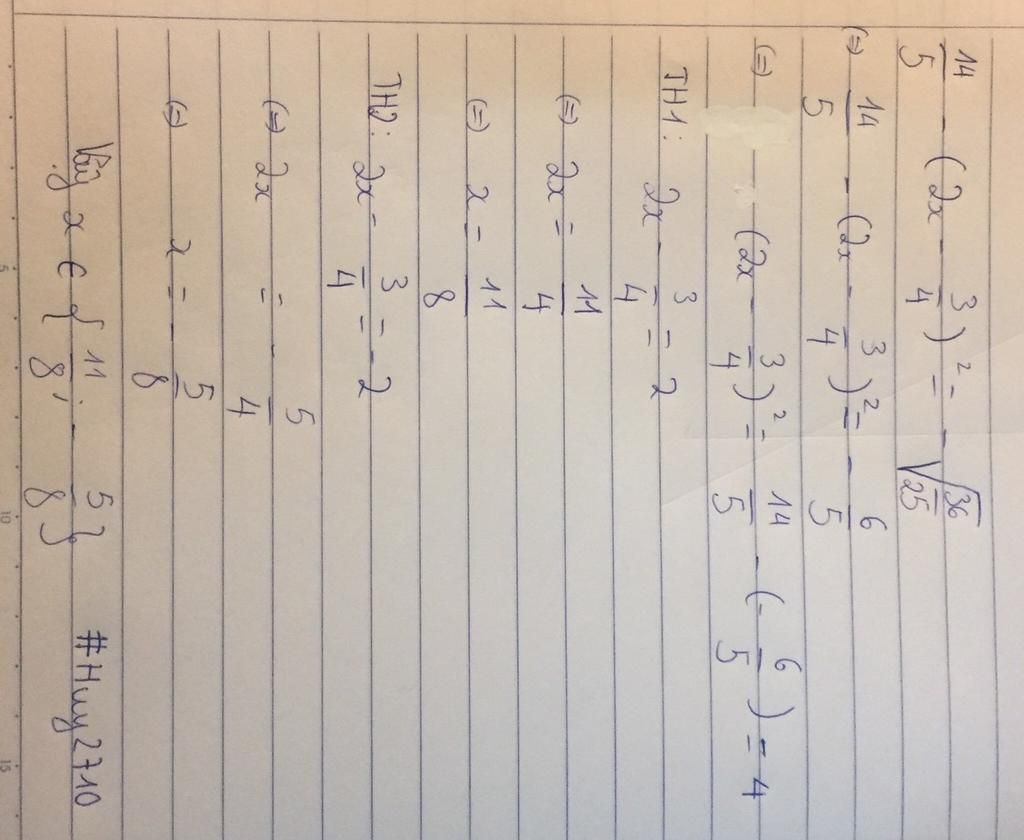 14/5 - (2x - 3/4)² = - √(36/25)
(=) 14/5 - (2x - 3/4)² = - 6/5
(=) (2x - 3/4)² = 14/5 - (- 6/5) = 4
TH1: 2x - 3/4 = 2
(=) 2x = 11/4
(=) x = 11/8
TH2: 2x - 3/4 = - 2
(=) 2x = - 5/4
(=) x = - 5/8
Vậy x ∈ { 11/8 ; - 5/8 } #Huy2710
5
10
15